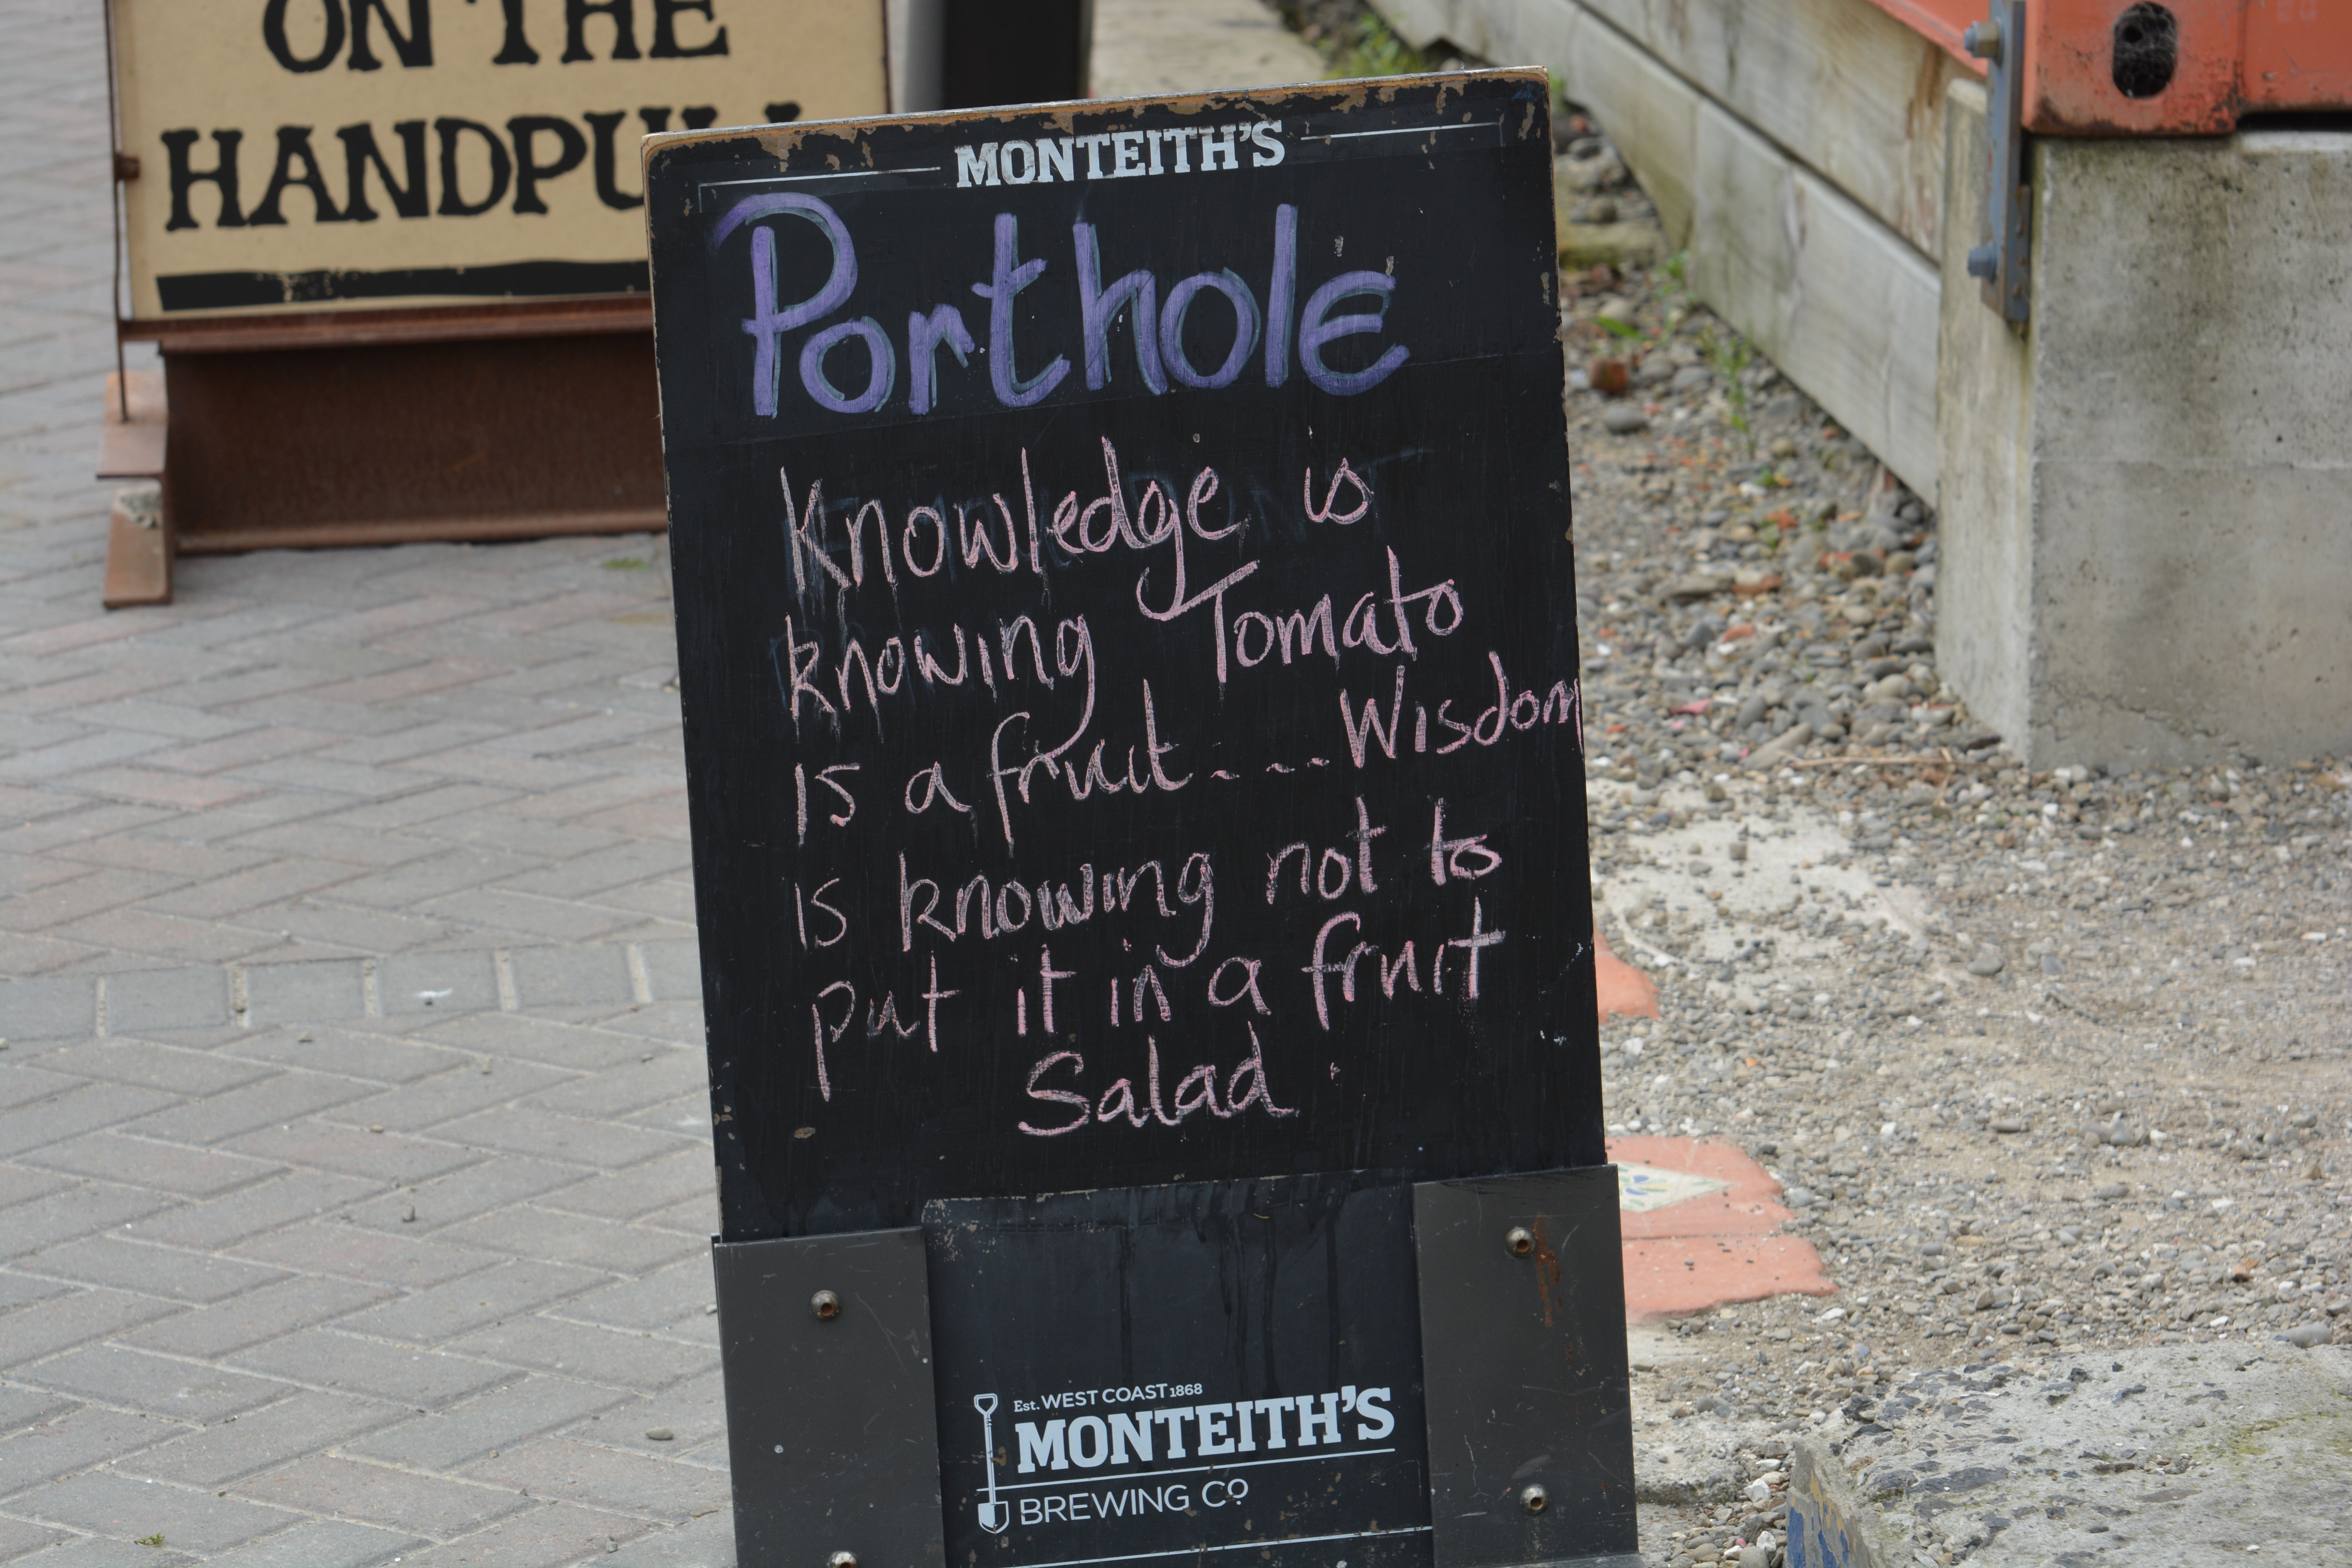 ON THE
MONTEITH'S
Porthole
Knowledge is
knowing Tomato
is a fruit....Wisdom
is knowing not to
put it in a fruit
Salad.
Est. WEST COAST 1868
MONTEITH'S
BREWING CO